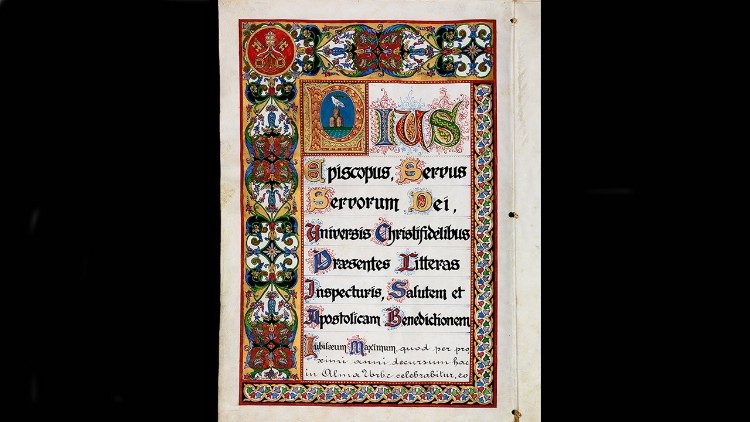 PIUS
Episcopus, Servus
Servorum Dei,
Universis Christifidelibus
Præsentes Litteras
Inspecturis, Salutem et
Apostolicam Benedictionem
Iubilæum Maximum quod per pro
ximi anni decursum hac
in Alma Urbe celebrabitur, eo